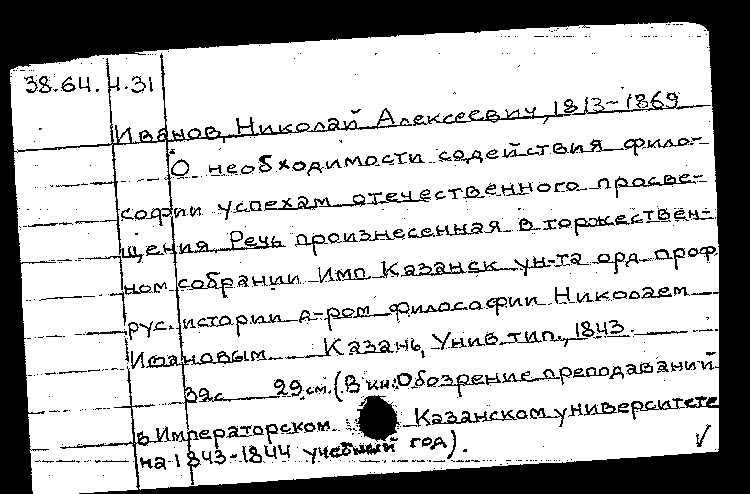 38.64.4.31
Иванов, Николай Алексеевич, 1813-1869
О необходимости содействия фило-
софии успехам отечественного просве-
щения Речь произнесенная в торжествен-
ном собрании Имп Казанск ун-та орд. проф
рус. истории д-ром философии Николаем
Ивановым Казань, Унив. тип., 1843.
39с 29 см. (В кн: Обозрение преподаваний
в Императорском Казанском университете
на 1843-1844 учебный год).